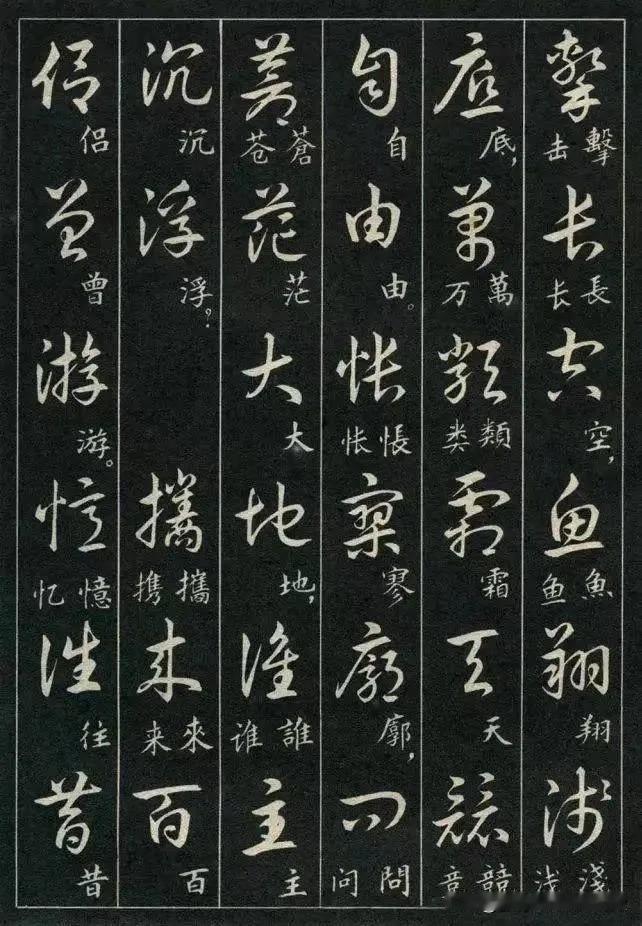 擊 擊击 長 長长 空 空， 魚 魚鱼 翔 翔 淺 淺浅
底 底， 萬 萬万 類 類类 霜 霜 天 天 競 競竞
自 自 由 由。 悵 悵怅 寥 寥 廓 廓， 問 問问
蒼 蒼苍 茫 茫 大 大 地 地， 誰 誰谁 主 主
沉 沉 浮 浮？ 攜 攜携 來 來来 百 百
侣 侣 曾 曾 游 游。 憶 憶忆 往 往 昔 昔